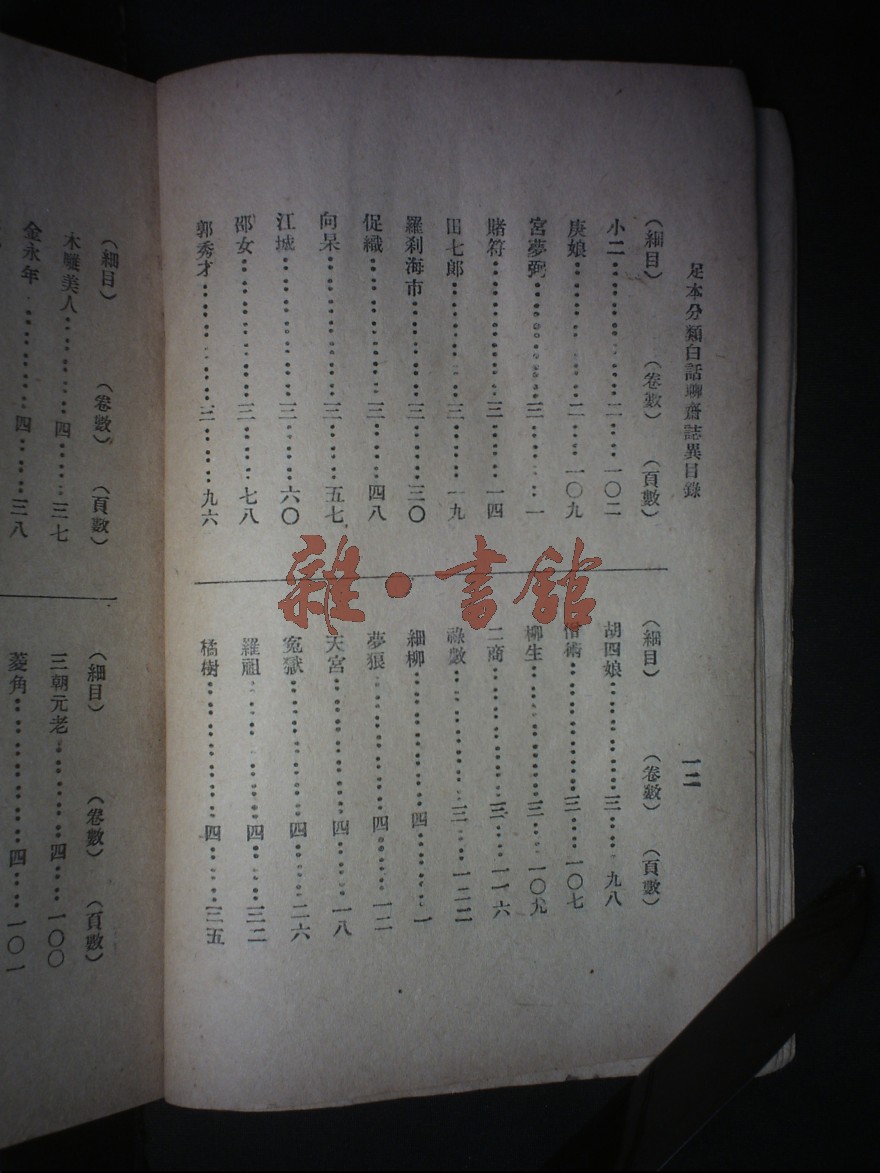 足本分類白話聊齋誌異目錄
一二
（細目）（卷數）（頁數）
小二……二……一〇二
庚娘……二……一〇九
宮夢弼……三……一
賭符……三……一四
田七郎……三……一九
羅刹海市……三……三〇
促織……三……四八
向杲……三……五七
江城……三……六〇
邵女……三……七八
郭秀才……三……九六
（細目）（卷數）（頁數）
胡四娘……三……九八
僧術……三……一〇七
柳生……三……一〇九
二商……三……一一六
祿數……三……一二二
細柳……四……一
夢狼……四……一二
天宮……四……一八
冤獄……四……二六
羅祖……四……三二
橘樹……四……三五
（細目）（卷數）（頁數）
木雕美人……四……三七
金永年……四……三八
（細目）（卷數）（頁數）
三朝元老……四……一〇〇
菱角……四……一〇一
雜·書館